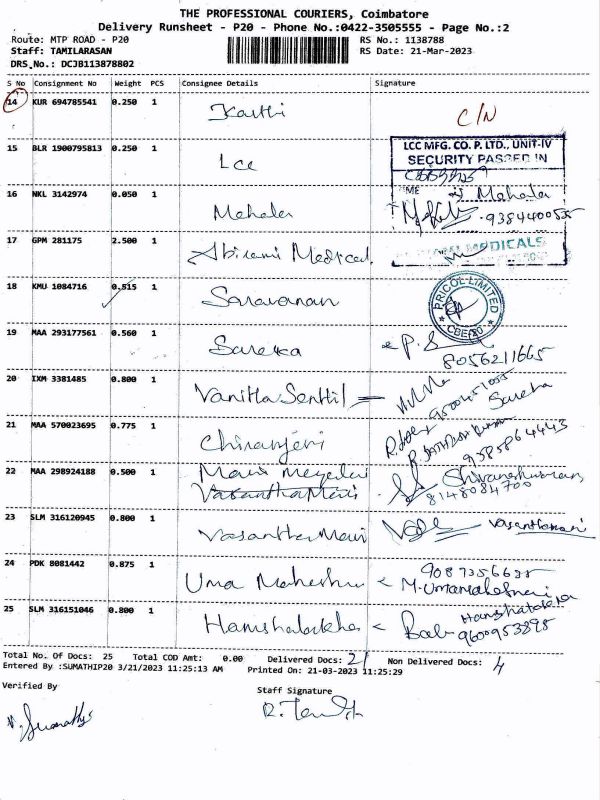 THE PROFESSIONAL COURIERS, Coimbatore
Delivery Runsheet - P20 - Phone No.:0422-3505555 - Page No.:2
Route: MTP ROAD - P20 RS No.: 1138788
Staff: TAMILARASAN RS Date: 21-Mar-2023
DRS No.: DCJB113878802
S No Consignment No Weight PCS Consignee Details Signature
14 KUR 694785541 0.250 1 Karthi C/N
LCC MFG. CO. P. LTD., UNIT-IV
SECURITY PASSED IN
15 BLR 1900795813 0.250 1 Lcc
TIME
16 NKL 3142974 0.050 1 Mehala Mehala
9384400535
17 GPM 281175 2.500 1 Abirami Medical MEDICALS
18 KMU 1084716 0.515 1 Saravanan PRICOL LIMITED
CBE-20
19 MAA 293177561 0.560 1 Sareka P.S
8056211665
20 IXM 3381485 0.800 1 Vanitha Senthil
Sareka
21 MAA 570023695 0.775 1 Chiranjevi
9585864443
22 MAA 298924188 0.500 1 Vasantha Mani
8148084700
23 SLM 316120945 0.800 1 Vasantha Mani Vasanthamani
24 PDK 8081442 0.875 1 Uma Maheshwari 9087356635
M.Umamaheswari
25 SLM 316151046 0.800 1 Hamshalekha Hamshalekha
9600953895
Total No. Of Docs: 25 Total COD Amt: 0.00 Delivered Docs: 21 Non Delivered Docs: 4
Entered By :SUMATHIP20 3/21/2023 11:25:13 AM Printed On: 21-03-2023 11:25:29
Verified By Staff Signature